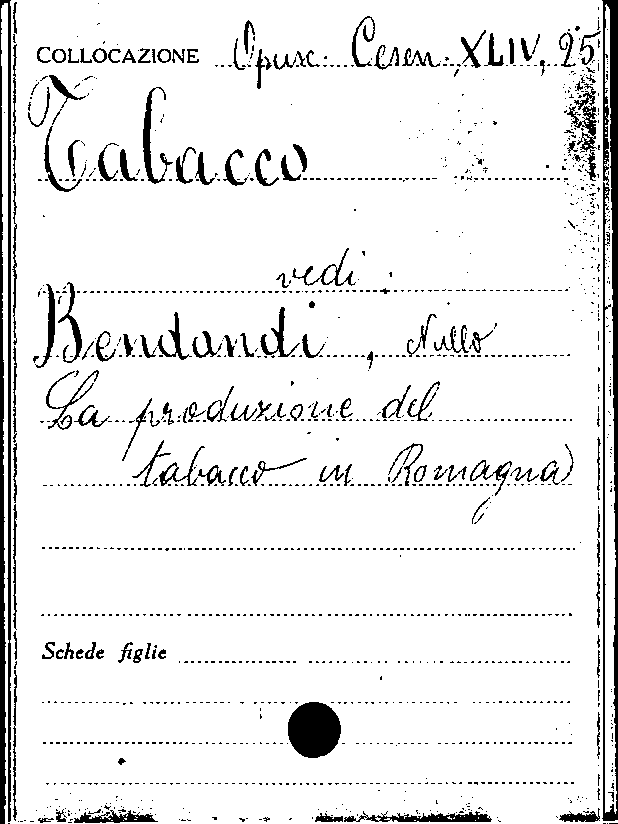 COLLOCAZIONE Opusc. Cesen. XLIV, 25
Tabacco
vedi:
Bendandi, Nullo
La produzione del
tabacco in Romagna
Schede figlie